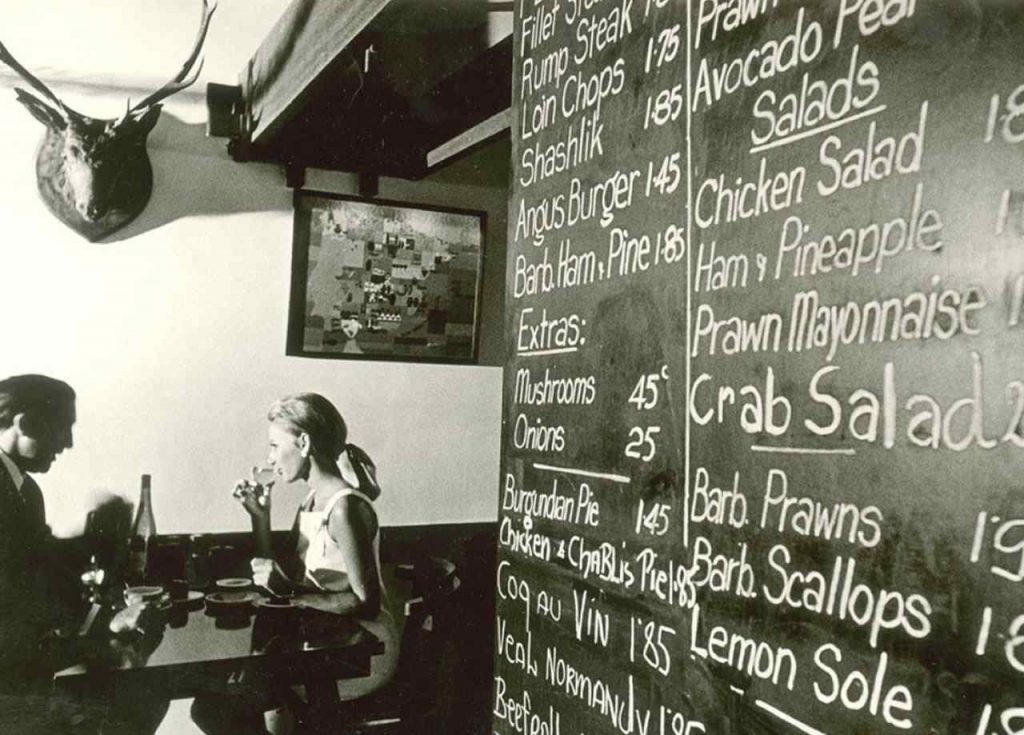 Fillet Steak
Rump Steak
Loin Chops 1.75
Shashlik 1.85
Angus Burger 1.45
Barb. Ham & Pine 1.85
Extras:
Mushrooms 45c
Onions 25
Burgundian Pie 1.45
Chicken & Chablis Pie 1.85
Coq au Vin 1.85
Veal Normandy 1.95
Prawn
Avocado Pear
Salads
Chicken Salad
Ham & Pineapple
Prawn Mayonnaise
Crab Salad
Barb. Prawns
Barb. Scallops
Lemon Sole